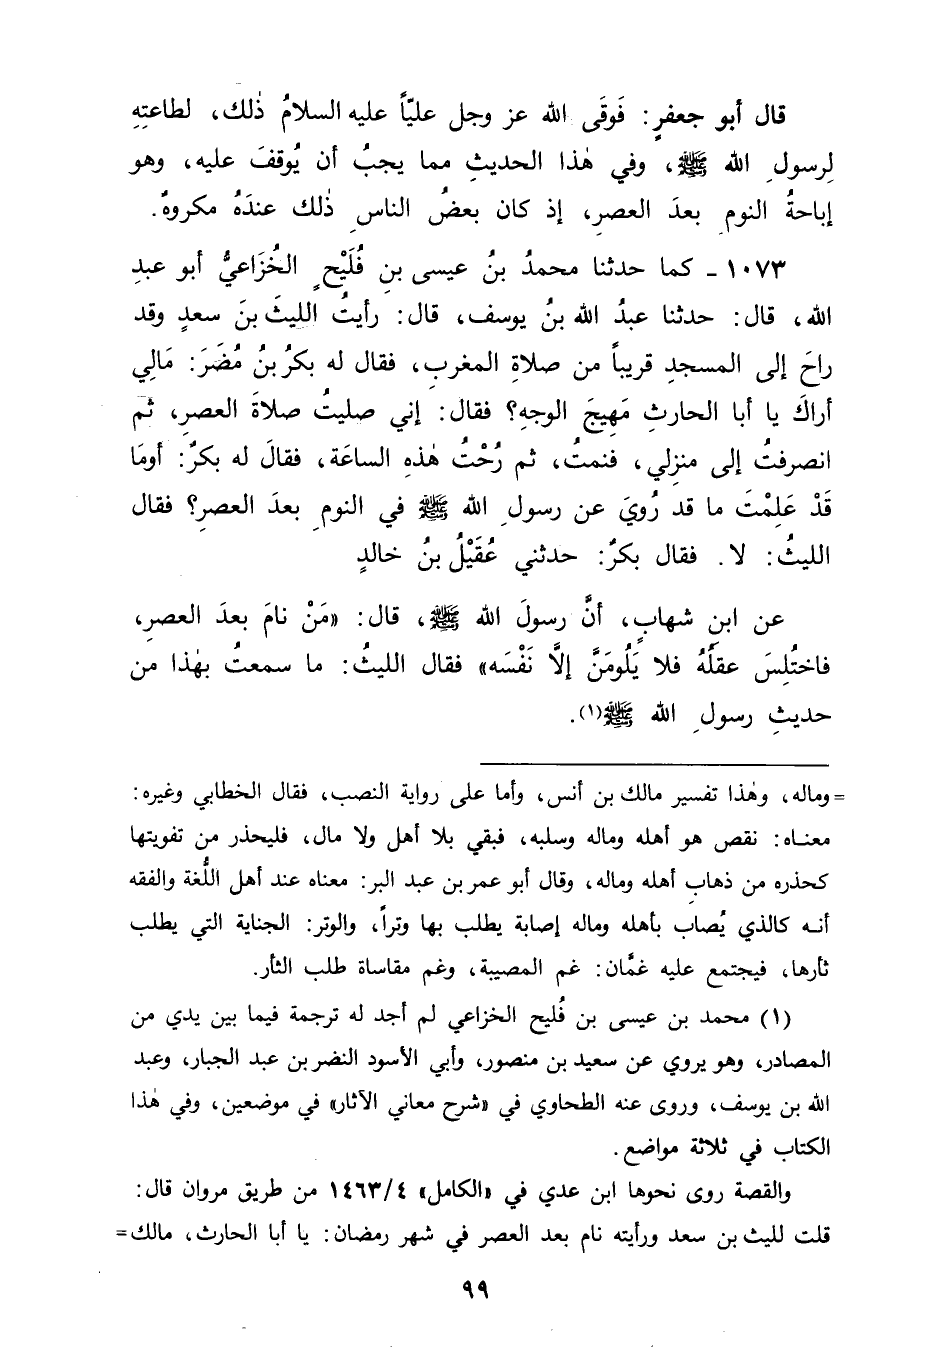 قال أبو جعفرٍ: فَوقَى الله عز وجل عليّاً عليه السلامُ ذٰلك، لطاعتِهِ
لِرسولِ الله ﷺ، وفي هٰذا الحديثِ مما يجبُ أن يُوقفَ عليه، وهو
إباحةُ النومِ بعدَ العصرِ، إذ كان بعضُ الناسِ ذٰلك عندَهُ مكروهٌ.
١٠٧٣ - كما حدثنا محمدُ بنُ عيسى بنِ فُلَيْحٍ الخُزَاعيُّ أبو عبدِ
الله، قال: حدثنا عبدُ الله بنُ يوسف، قال: رأيتُ الليثَ بنَ سعدٍ وقد
راحَ إلى المسجدِ قريباً من صلاةِ المغربِ، فقال له بكرُ بنُ مُضَرَ: مَالِي
أراكَ يا أبا الحارثِ مَهِيجَ الوجهِ؟ فقال: إني صليتُ صلاةَ العصرِ، ثم
انصرفتُ إلى منزلي، فنمتُ، ثم رُحْتُ هٰذهِ الساعَة، فقالَ له بكرٌ: أومَا
قَدْ عَلِمْتَ ما قد رُويَ عن رسولِ الله ﷺ في النومِ بعدَ العصرِ؟ فقال
الليثُ: لا. فقال بكرٌ: حدثني عُقَيْلُ بنُ خالدٍ
عن ابنِ شهابٍ، أنَّ رسولَ الله ﷺ، قال: «مَنْ نامَ بعدَ العصرِ،
فاختُلِسَ عقلُهُ فلا يَلُومَنَّ إلَّا نَفْسَه» فقال الليثُ: ما سمعتُ بهٰذا من
حديثِ رسولِ الله ﷺ(١).
= وماله، وهٰذا تفسير مالك بن أنس، وأما على رواية النصب، فقال الخطابي وغيره:
معناه: نقص هو أهله وماله وسلبه، فبقي بلا أهل ولا مال، فليحذر من تفويتها
كحذره من ذهاب أهله وماله، وقال أبو عمر بن عبد البر: معناه عند أهل اللُّغة والفقه
أنه كالذي يُصاب بأهله وماله إصابة يطلب بها وتراً، والوتر: الجناية التي يطلب
ثأرها، فيجتمع عليه غمَّان: غم المصيبة، وغم مقاساة طلب الثأر.
(١) محمد بن عيسى بن فُليح الخزاعي لم أجد له ترجمة فيما بين يدي من
المصادر، وهو يروي عن سعيد بن منصور، وأبي الأسود النضر بن عبد الجبار، وعبد
الله بن يوسف، وروى عنه الطحاوي في «شرح معاني الآثار» في موضعين، وفي هٰذا
الكتاب في ثلاثة مواضع.
والقصة روى نحوها ابن عدي في «الكامل» ١٤٦٣/٤ من طريق مروان قال:
قلت لليث بن سعد ورأيته نام بعد العصر في شهر رمضان: يا أبا الحارث، مالك =
٩٩